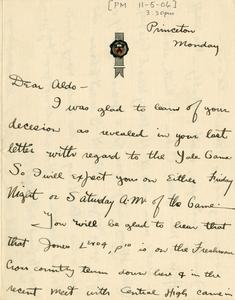 [PM 11-5-06]
3:30pm
Princeton
Monday
Dear Aldo-
I was glad to learn of your
decision as revealed in your last
letter with regard to the Yale Game
So I will expect you on either Friday
Night or Saturday A.M. of the Game.
You will be glad to hear that
that Jones L'vog, p'10 is on the Freshman
Cross country team down here & in the
recent meet with Central High came in